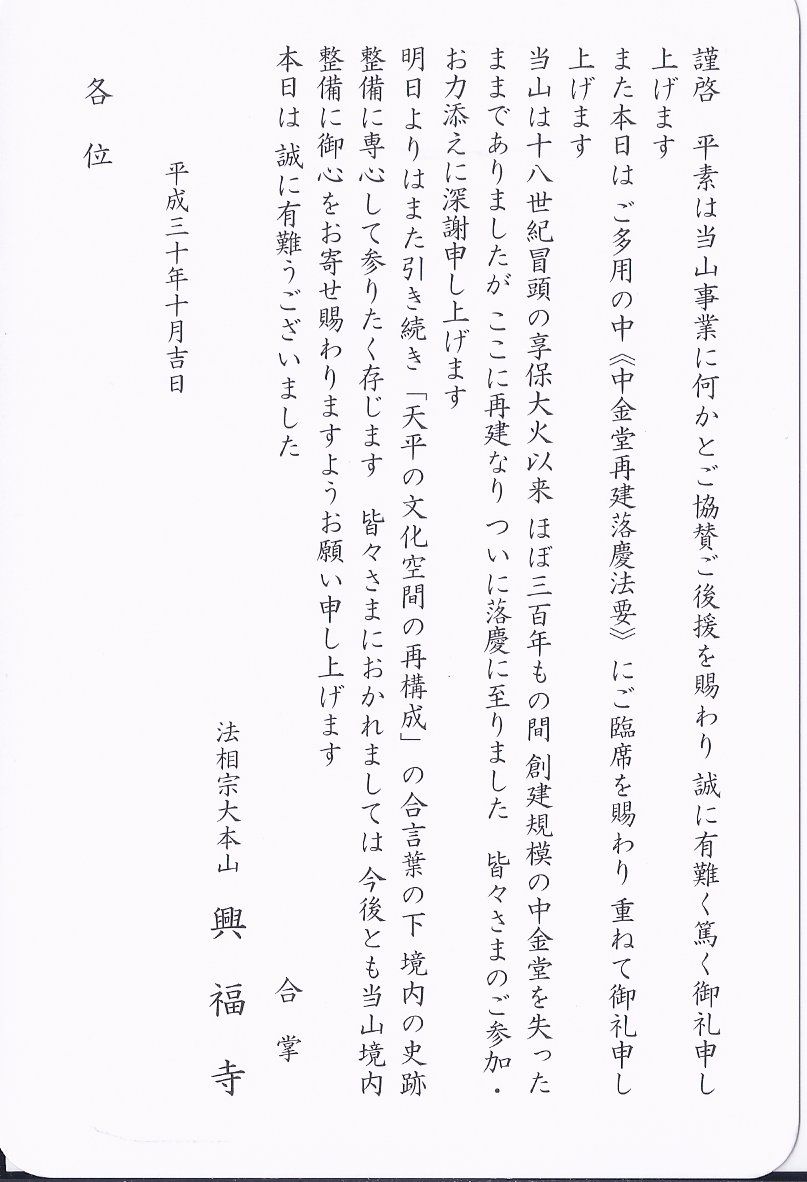 謹啓　平素は当山事業に何かとご協賛ご後援を賜わり 誠に有難く篤く御礼申し
上げます
また本日は ご多用の中《中金堂再建落慶法要》にご臨席を賜わり 重ねて御礼申し
上げます
当山は十八世紀冒頭の享保大火以来 ほぼ三百年もの間 創建規模の中金堂を失った
ままでありましたが ここに再建なり ついに落慶に至りました　皆々さまのご参加・
お力添えに深謝申し上げます
明日よりはまた引き続き「天平の文化空間の再構成」の合言葉の下 境内の史跡
整備に専心して参りたく存じます　皆々さまにおかれましては 今後とも当山境内
整備に御心をお寄せ賜わりますようお願い申し上げます
本日は 誠に有難うございました
合掌
法相宗大本山 興福寺
平成三十年十月吉日
各位